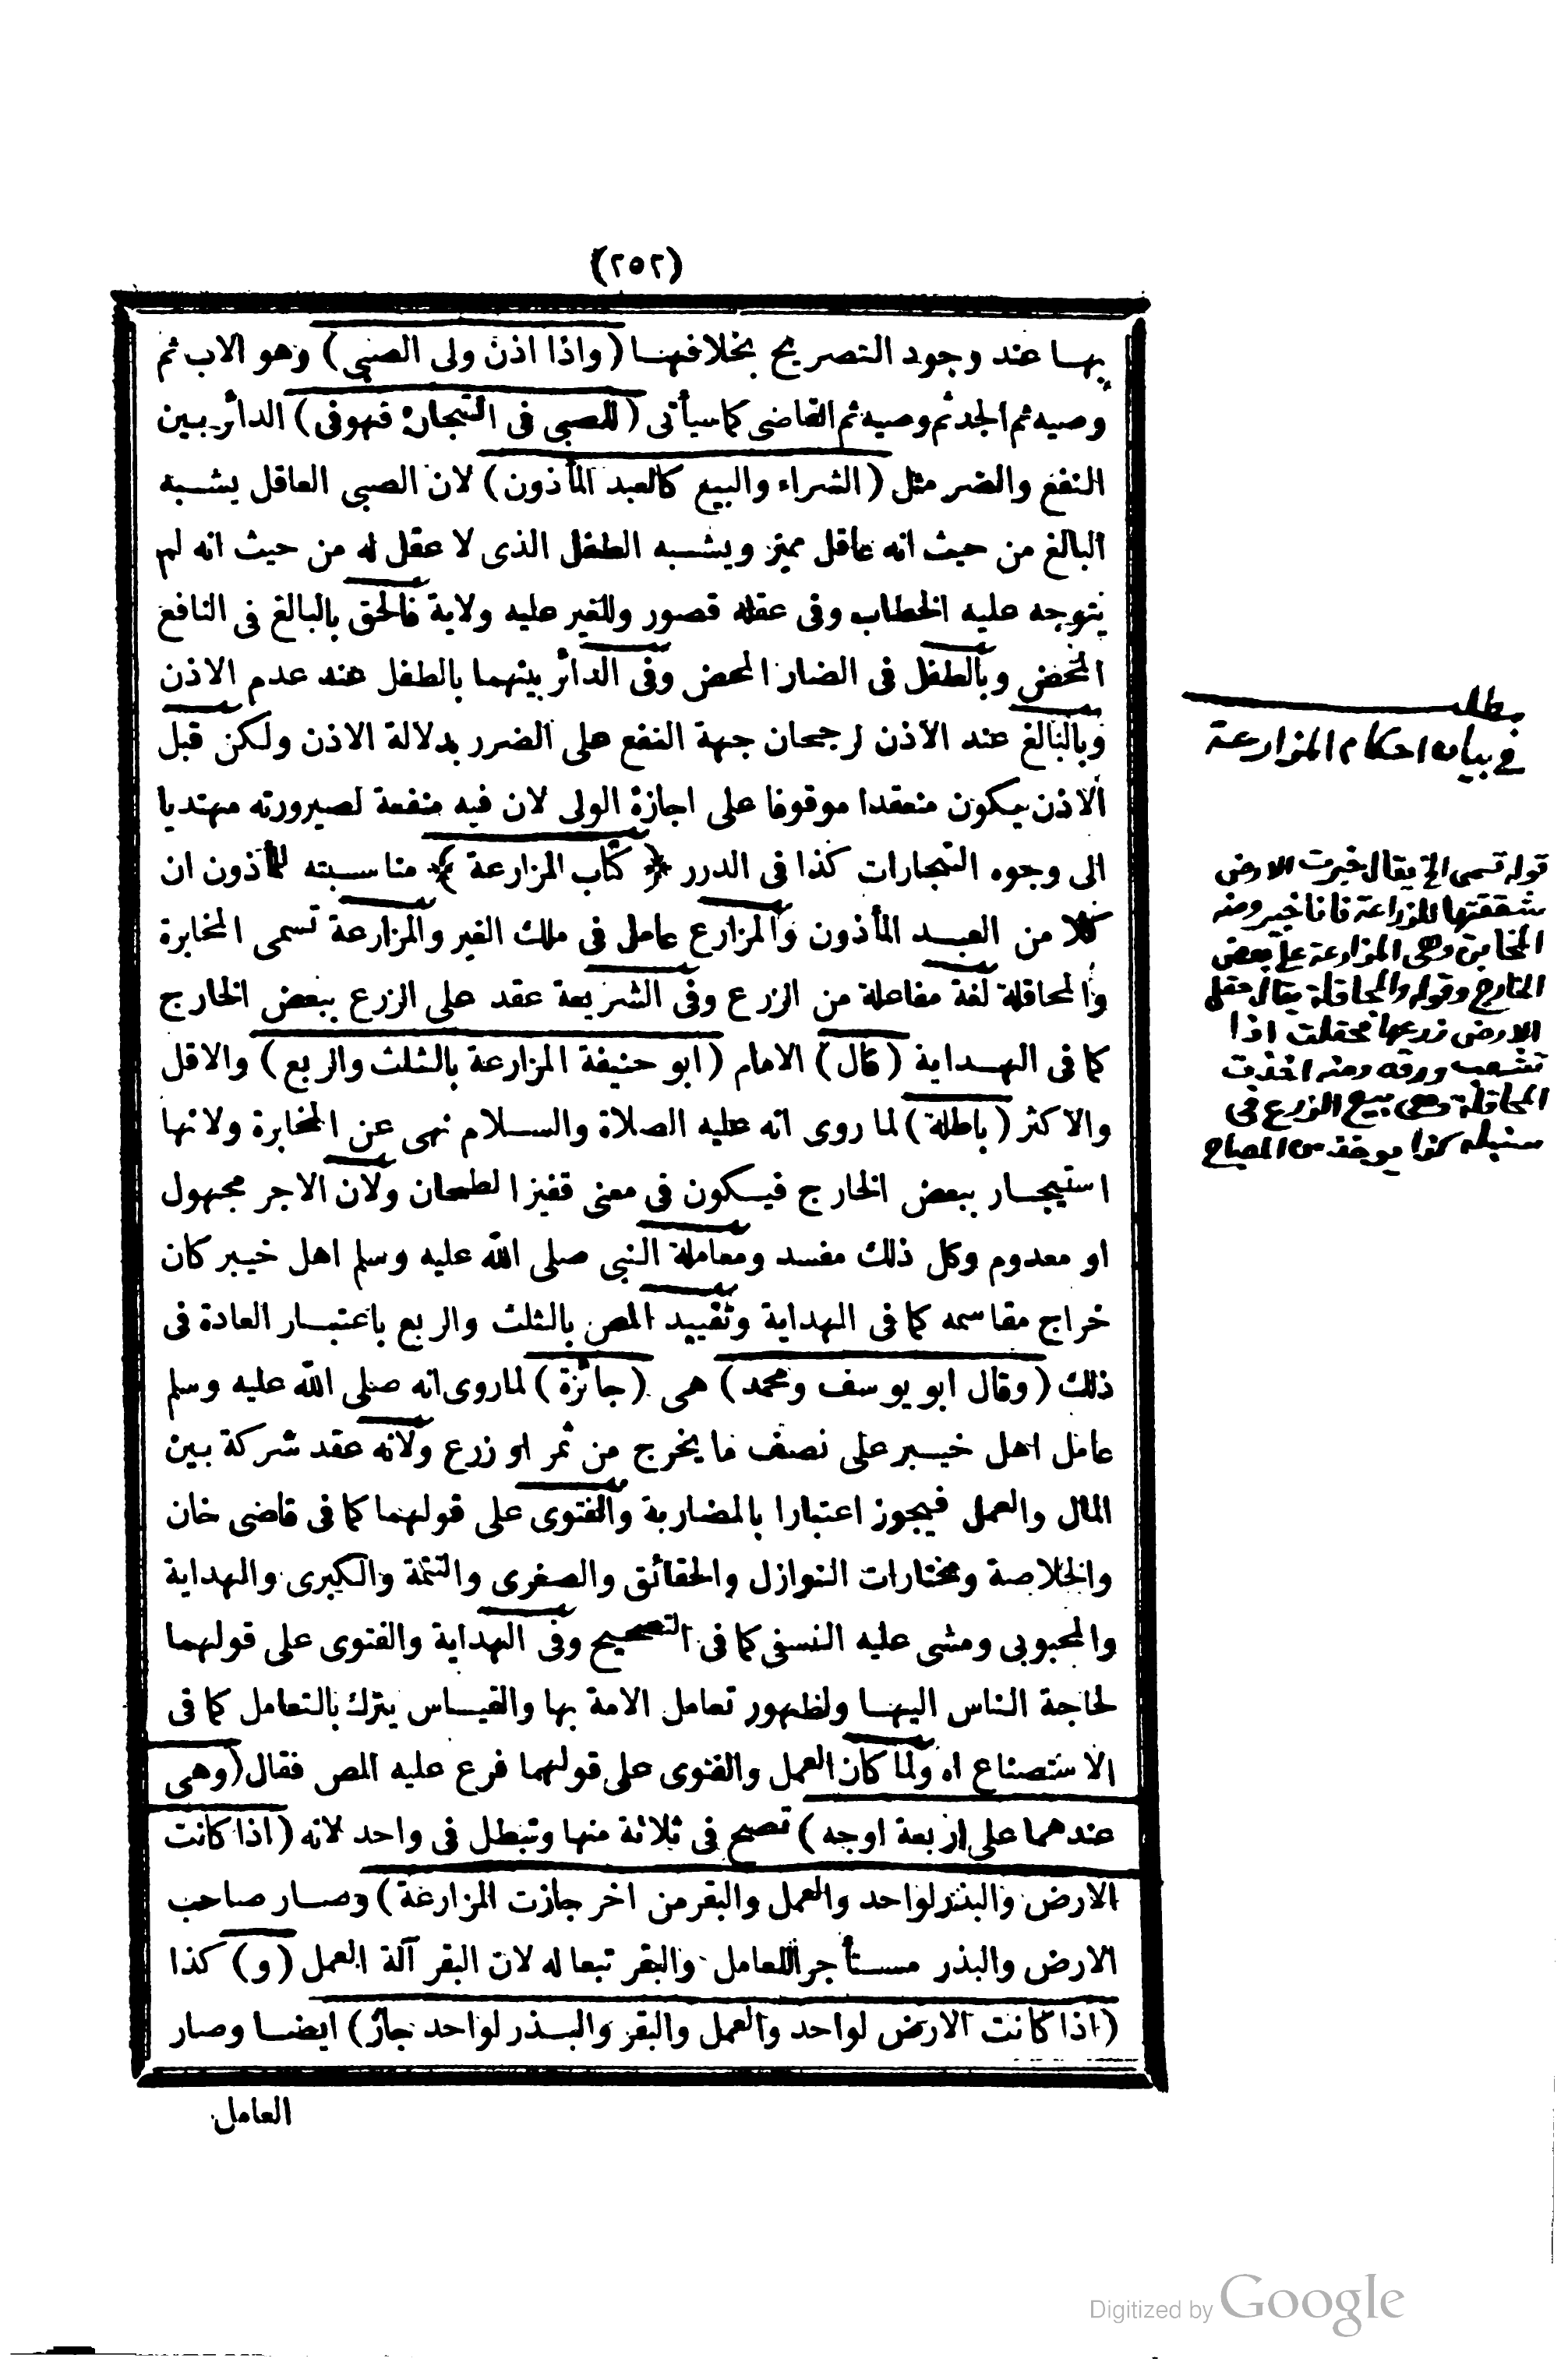 (٢٥٢)
بها عند وجود التصريح بخلافها (واذا اذن ولى الصبى) وهو الاب ثم
وصيه ثم الجد ثم وصيه ثم القاضى كما سيأتى (للصبى فى التجارة فهو فى) الدائر بين
النفع والضر مثل (الشراء والبيع كالعبد المأذون) لان الصبى العاقل يشبه
البالغ من حيث انه عاقل مميز ويشبه الطفل الذى لا عقل له من حيث انه لم
يتوجه عليه الخطاب وفى عقله قصور وللغير عليه ولاية فالحق بالبالغ فى النافع
المحض وبالطفل فى الضار المحض وفى الدائر بينهما بالطفل عند عدم الاذن
وبالبالغ عند الاذن لرجحان جهة النفع على الضرر بدلالة الاذن ولكن قبل
الاذن يكون منعقدا موقوفا على اجازة الولى لان فيه منفعة لصيرورته مهتديا
الى وجوه التجارات كذا فى الدرر ﴿ كتاب المزارعة ﴾ مناسبته للمأذون ان
كلا من العبد المأذون والمزارع عامل فى ملك الغير والمزارعة تسمى المخابرة
والمحاقلة لغة مفاعلة من الزرع وفى الشريعة عقد على الزرع ببعض الخارج
كما فى الهداية (قال) الامام (ابو حنيفة المزارعة بالثلث والربع) والاقل
والاكثر (باطلة) لما روى انه عليه الصلاة والسلام نهى عن المخابرة ولانها
استيجار ببعض الخارج فيكون فى معنى قفيز الطحان ولان الاجر مجهول
او معدوم وكل ذلك مفسد ومعاملة النبى صلى الله عليه وسلم اهل خيبر كان
خراج مقاسمه كما فى الهداية وتقييد المص بالثلث والربع باعتبار العادة فى
ذلك (وقال ابو يوسف ومحمد) هى (جائزة) لما روى انه صلى الله عليه وسلم
عامل اهل خيبر على نصف ما يخرج من ثمر او زرع ولانه عقد شركة بين
المال والعمل فيجوز اعتبارا بالمضاربة والفتوى على قولهما كما فى قاضى خان
والخلاصة ومختارات النوازل والحقائق والصغرى والتتمة والكبرى والهداية
والمحبوبى ومشى عليه النسفى كما فى التصحيح وفى الهداية والفتوى على قولهما
لحاجة الناس اليها ولظهور تعامل الامة بها والقياس يترك بالتعامل كما فى
الاستصناع اه ولما كان العمل والفتوى على قولهما فرع عليه المص فقال (وهى
عندهما على اربعة اوجه) تصح فى ثلاثة منها وتبطل فى واحد لانه (اذا كانت
الارض والبذر لواحد والعمل والبقر من اخر جازت المزارعة) وصار صاحب
الارض والبذر مستأجرا للعامل والبقر تبعا له لان البقر آلة العمل (و) كذا
(اذا كانت الارض لواحد والعمل والبقر والبذر لواحد جاز) ايضا وصار
العامل
مطلب
فى بيان احكام المزارعة
قوله تسمى الخ يقال خبرت الارض
شققتها للزراعة فانا خبير ومنه
المخابرة وهى المزارعة على بعض
الخارج وقوله والمحاقلة يقال حقل
الارض زرعها محقلت اذا
تشعب ورقه ومنه اخذت
المحاقلة وهى بيع الزرع فى
سنبله كذا يوخذ من المصباح
Digitized by Google